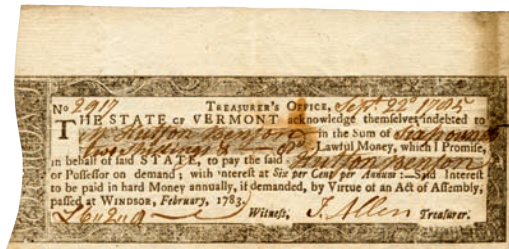 No 2917 TREASURER'S OFFICE, Sept. 22d 1785
THE STATE OF VERMONT acknowledge themselves indebted to
in the Sum of Six pounds
two Shillings & Lawful Money, which I Promise,
in behalf of said STATE, to pay the said
or Possessor on demand; with interest at Six per Cent per Annum:—Said Interest
to be paid in hard Money annually, if demanded, by Virtue of an Act of Assembly,
passed at WINDSOR, February, 1783.
Witness, I. Allen Treasurer.